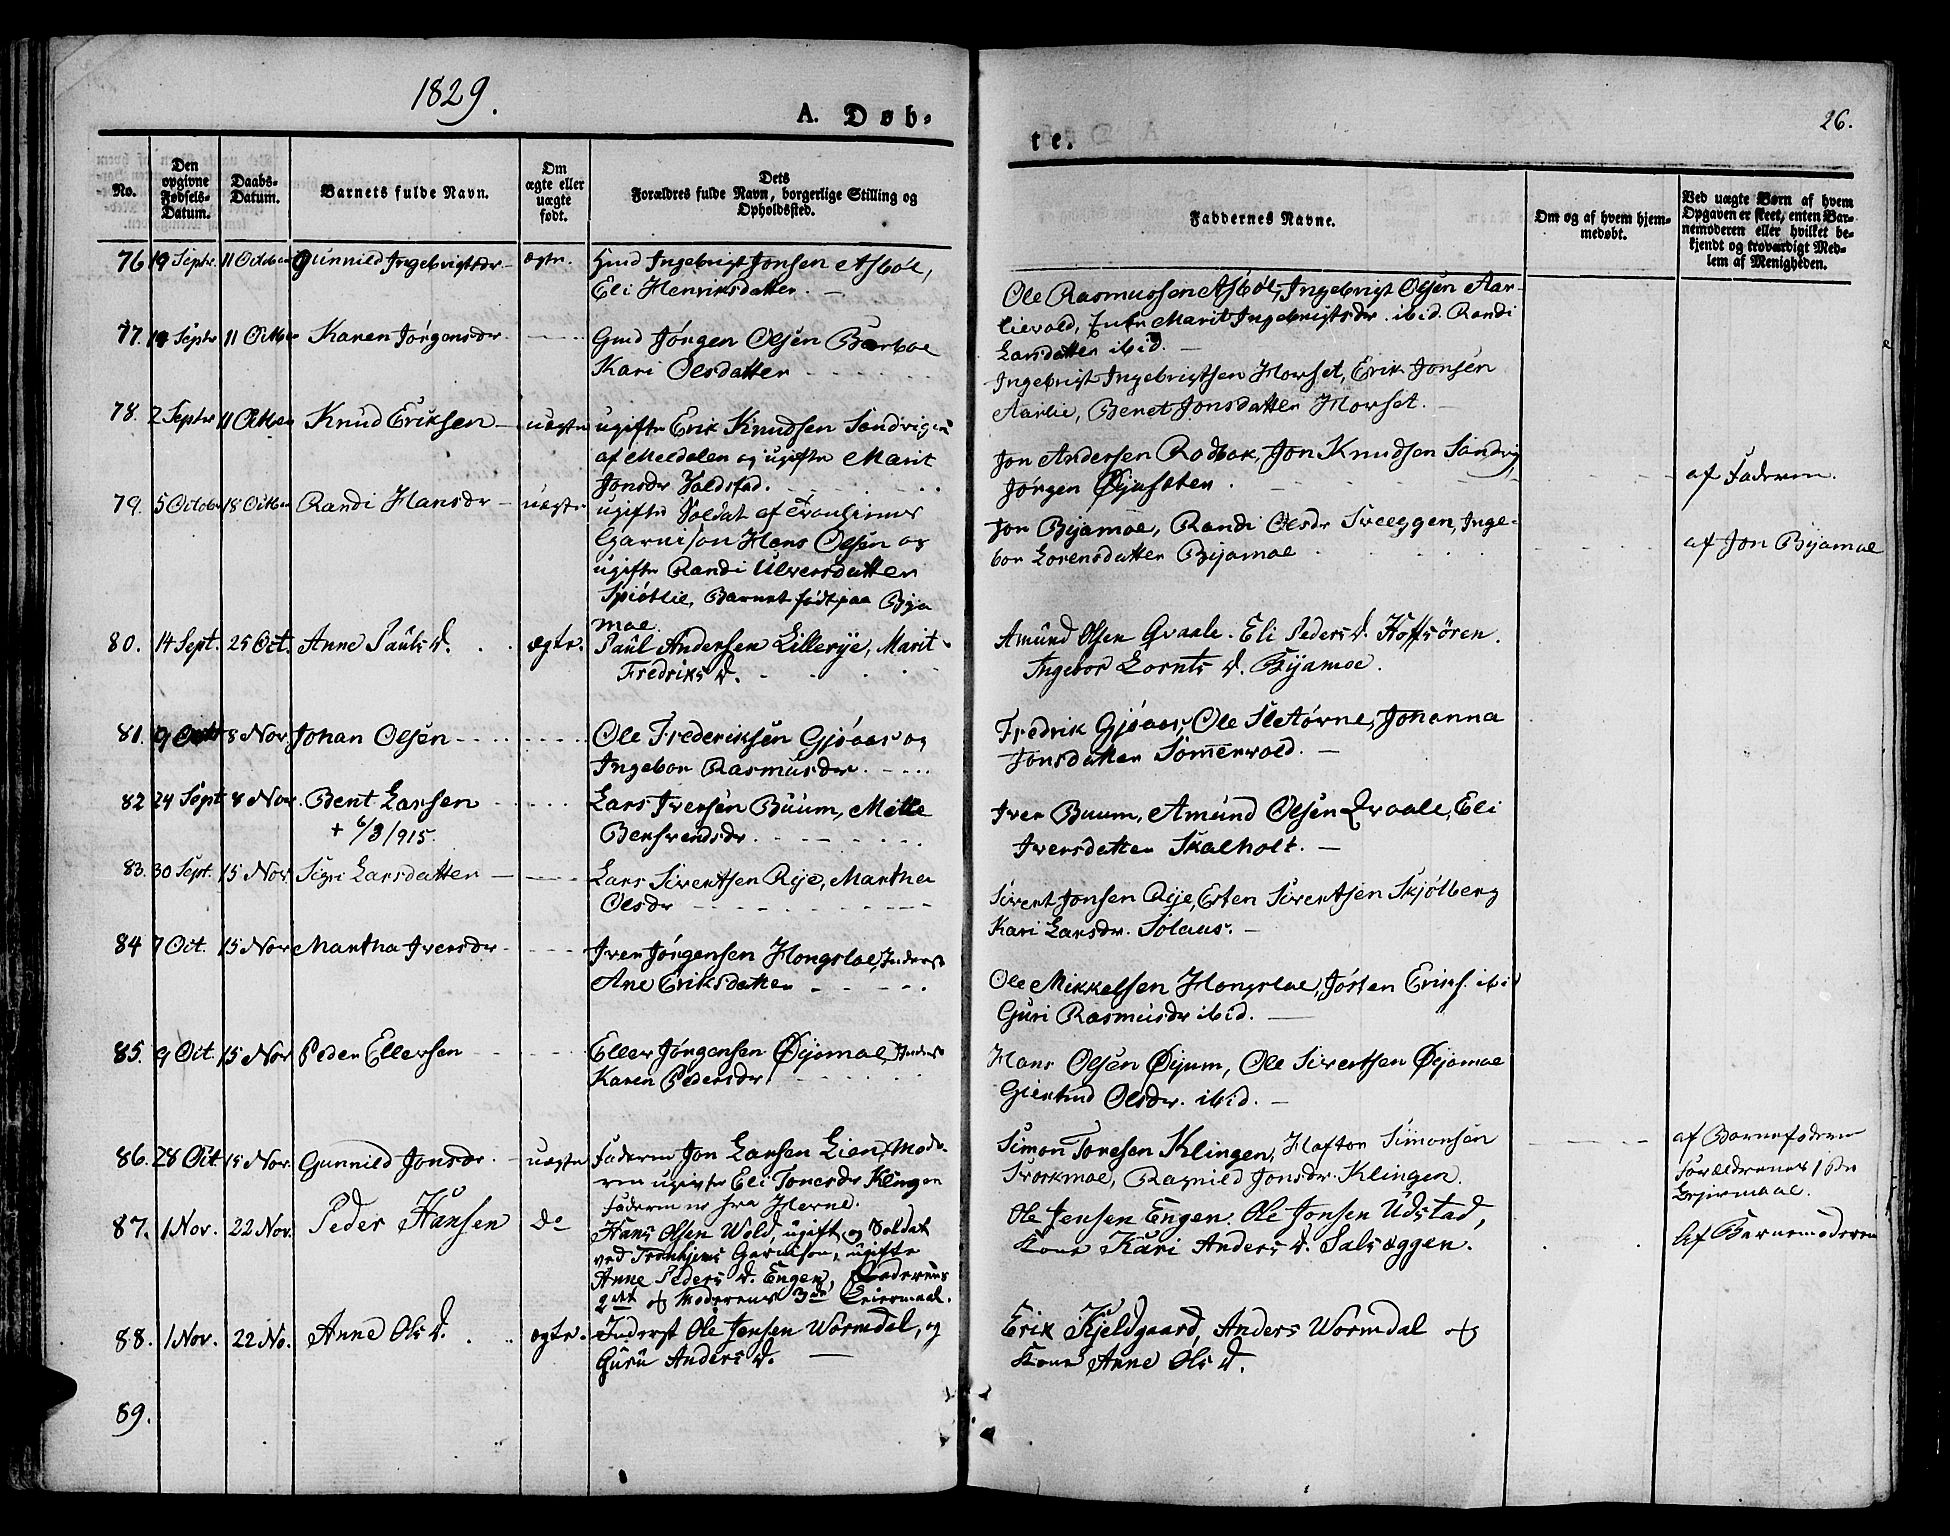 1829.
A. Døb-
No.
Den opgivne Fødsels-Datum.
Daabs-Datum.
Barnets fulde Navn.
Om ægte eller uægte født.
Dets Forældres fulde Navn, borgerlige Stilling og Opholdssted.
76 19 Septr. 11 October Gunnild Ingebrigtsdr ægte. Gmd Ingebrigt Jonsen Asbøe,
Eli Henriksdatter.
77. 14 Septr 11 Octber Karen Jørgensdr Gmd Jørgen Olsen Bærboe
Kari Olsdatter
78. 2 Septr 11 Octber Knud Eriksen uægte ugifte Erik Knudsen Sandvigen
af Meldalen og ugifte Marit
Jonsdr Voldstad.
79. 5 Octobr 18 Octber Randi Hansdr uægte ugifte Soldat af Tronhjems
Garnison Hans Olsen og
ugifte Randi Ulversdatter
Spiøtlie, Barnet født paa Bjja
moe.
80. 14 Sept. 25 Oct. Anne Pauls d. ægte. Paul Andersen Lillerye, Marit
Fredriks d.
81. 9 Octr 8 Nov Johan Olsen Ole Frederiksen Gjøaas og
Ingebor Rasmusdr.
82 24 Sept 8 Nov. Bent Larsen Lars Iversen Buum, Mette
+ 6/3 1915. Berhrendsdr.
83. 30 Sept. 15 Nov. Sigri Larsdatter Lars Sivertsen Rije, Martha
Olsdr
84 7 Oct. 15 Nov Martha Iversdr Iver Jørgensen Hongsloe, Inderst
Ane Eriksdatter
85. 9 Oct. 15 Nov Peder Ellersen Eller Jørgensen Øijamoe, Inderst
Karen Pedersdr
86. 28 Oct. 15 Nov. Gunnild Jonsdr. uægte Faderen Jon Larsen Lien, Mode-
ren ugivte Eli Tonesdr Klingen
Faderen er fra Herne.
87. 1 Nov. 22 Nov. Peder Hansen do Hans Olsen Wold, ugift og Soldat
ved Tronhjems Garnison, ugifte
Anne Peders d. Engen, Faderens
2det og Moderens 3de Leiermaal.
88. 1 Nov. 22 No. Anne Ols d. ægte. Inderst Ole Jensen Wormdal, og
Guru Anders d.
89.
te.
26.
Faddernes Navne.
Om og af hvem hjemmedøbt.
Ved uægte Børn af hvem
Opgaven er skeet, enten Bar-
nemoderen eller hvilket be-
kjendt og troværdigt Med-
lem af Menigheden.
Ole Rasmussen Asbøe, Ingebrigt Olsen Aar-
lievold, Enke Marit Ingebrigtsdr. ibid. Randi
Larsdatter ibid.
Ingebrigt Ingebrigtsen Horset, Erik Jonsen
Aarlie, Benet Jonsdatter Horset.
Jon Andersen Rodbak, Jon Knudsen Sandvig,
Jørgen Øjusæter. af Faderen.
Jon Bijamoe, Randi Olsdr Sveeggen, Inge-
bor Lorensdatter Bijamoe af Jon Bijamoe
Amund Olsen Qvaale. Eli Peders d. Hoffsören.
Ingebor Lornts d. Bijamoe.
Fredrik Gjøaas, Ole Sletørne, Johanna
Jonsdatter Somerwold.
Iver Buum, Amund Olsen Qvaale, Eli
Iversdatter Skalholt.
Sivert Jonsen Rije, Esten Sivertsen Skjølberg
Kari Larsdr. Solaas.
Ole Mikkelsen Hongsloe, Jøsten Eriks. ibid
Guri Rasmusdr ibid.
Hans Olsen Øijum, Ole Sivertsen Øijamoe
Giertrud Olsdr. ibid.
Simon Tonesen Klingen, Haftor Simonsen af Barnefaderen
Storkmoe, Ragnild Jonsdr. Klingen. Forældrenes 1ste
Lejermaal.
Ole Jensen Engen. Ole Jonsen Udstad,
Kone Kari Anders d. Salsæggen. Af Barnemoderen
Erik Kjeldgaard, Anders Wormdal og
Kone Anne Ols d.